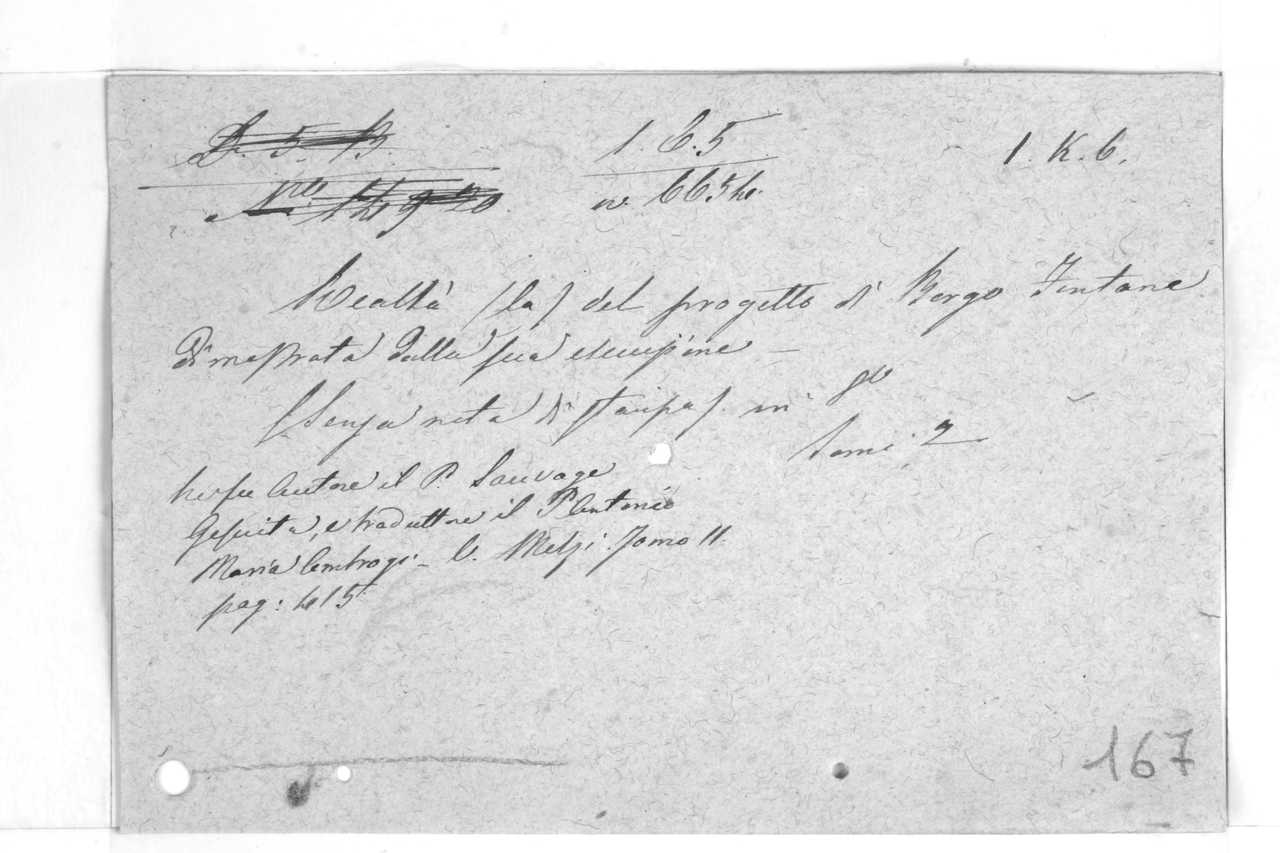 D. 5. B.
1. C. 5
1. K. 6.
n. 6654.
Realtà (la) del progetto di Borgo Fontane
dimostrata dalla sua esecuzione —
(Senza nota di stampa) in 8vo
tomi 2
ne fu Autore il P. Sauvage
Gesuita, e traduttore il P. Antonio
Maria Ambrogi – V. Melzi Tomo II.
pag: 415
167